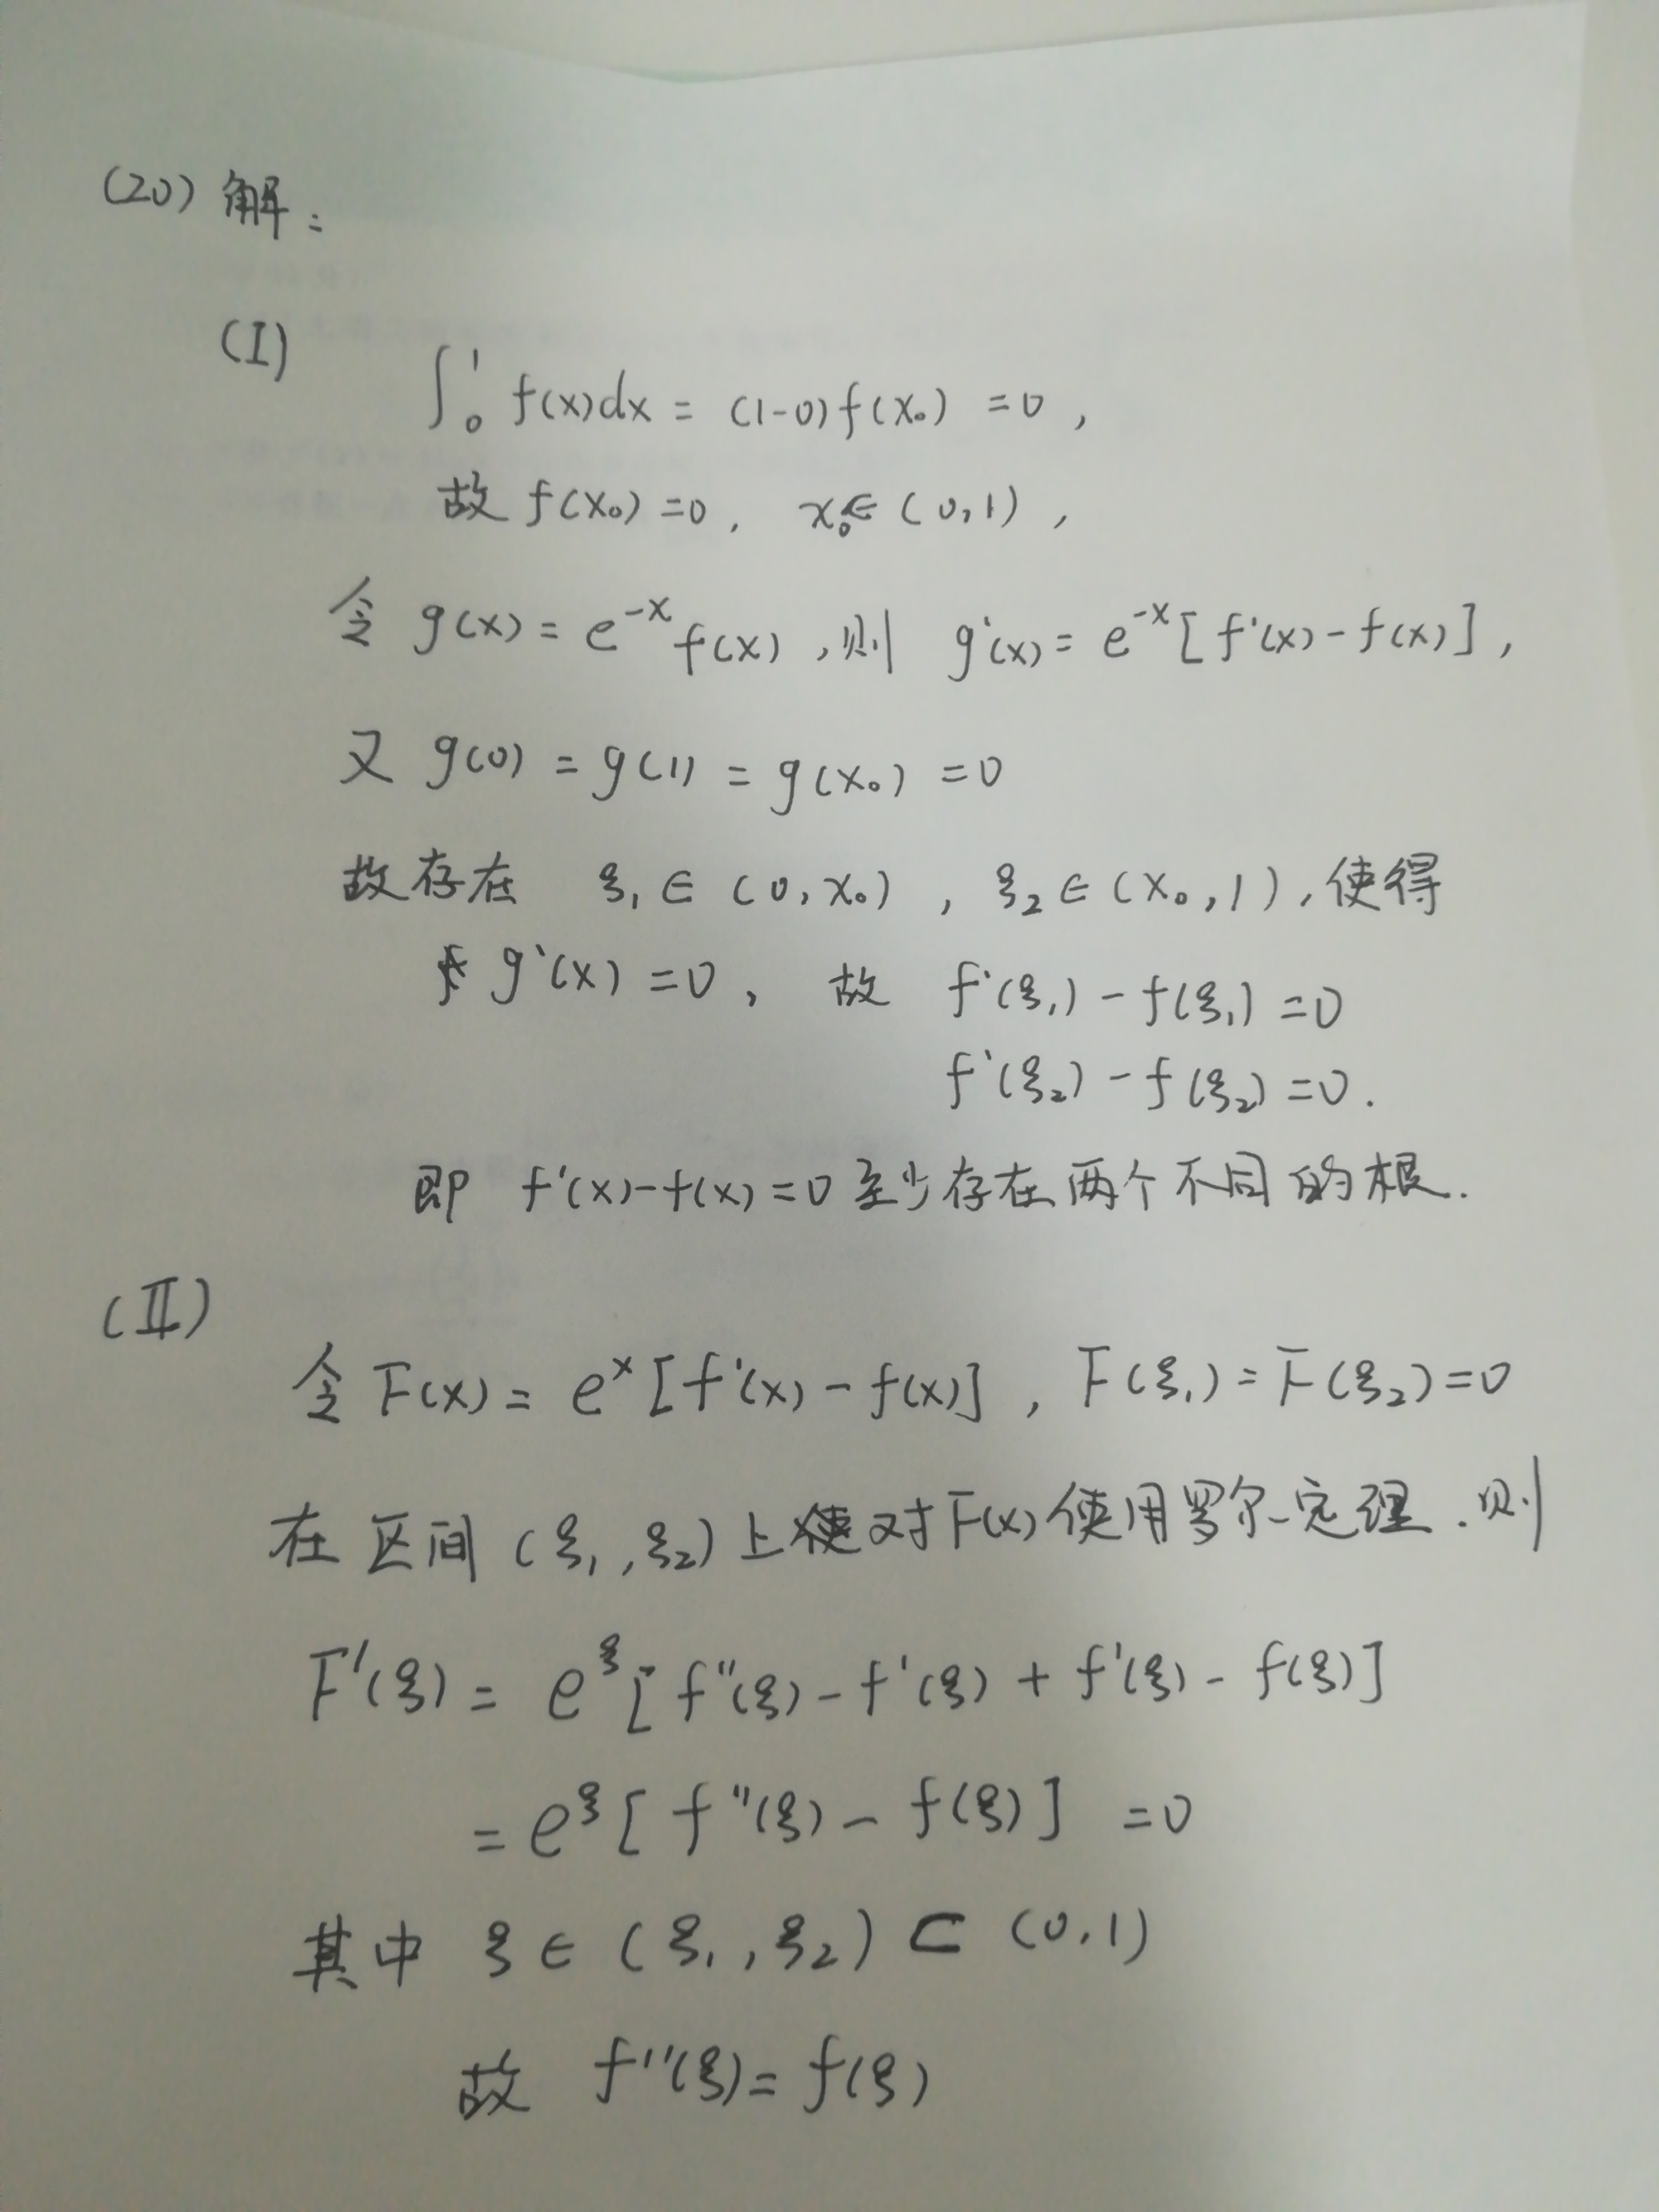 (20) 解:
(I)
∫₀¹ f(x)dx = (1-0)f(x₀) = 0,
故 f(x₀)=0, x₀∈(0,1),
令 g(x) = e⁻ˣ f(x), 则 g'(x) = e⁻ˣ[f'(x) - f(x)],
又 g(0) = g(1) = g(x₀) = 0
故存在 ξ₁ ∈ (0, x₀), ξ₂ ∈ (x₀, 1), 使得
g'(x) = 0, 故 f'(ξ₁) - f(ξ₁) = 0
f'(ξ₂) - f(ξ₂) = 0.
即 f'(x)-f(x)=0 至少存在两个不同的根.
(II)
令 F(x) = eˣ[f'(x) - f(x)], F(ξ₁) = F(ξ₂) = 0
在区间 (ξ₁, ξ₂) 上对 F(x) 使用罗尔定理. 则
F'(ξ) = e^ξ[f''(ξ) - f'(ξ) + f'(ξ) - f(ξ)]
= e^ξ[f''(ξ) - f(ξ)] = 0
其中 ξ ∈ (ξ₁, ξ₂) ⊂ (0,1)
故 f''(ξ) = f(ξ)